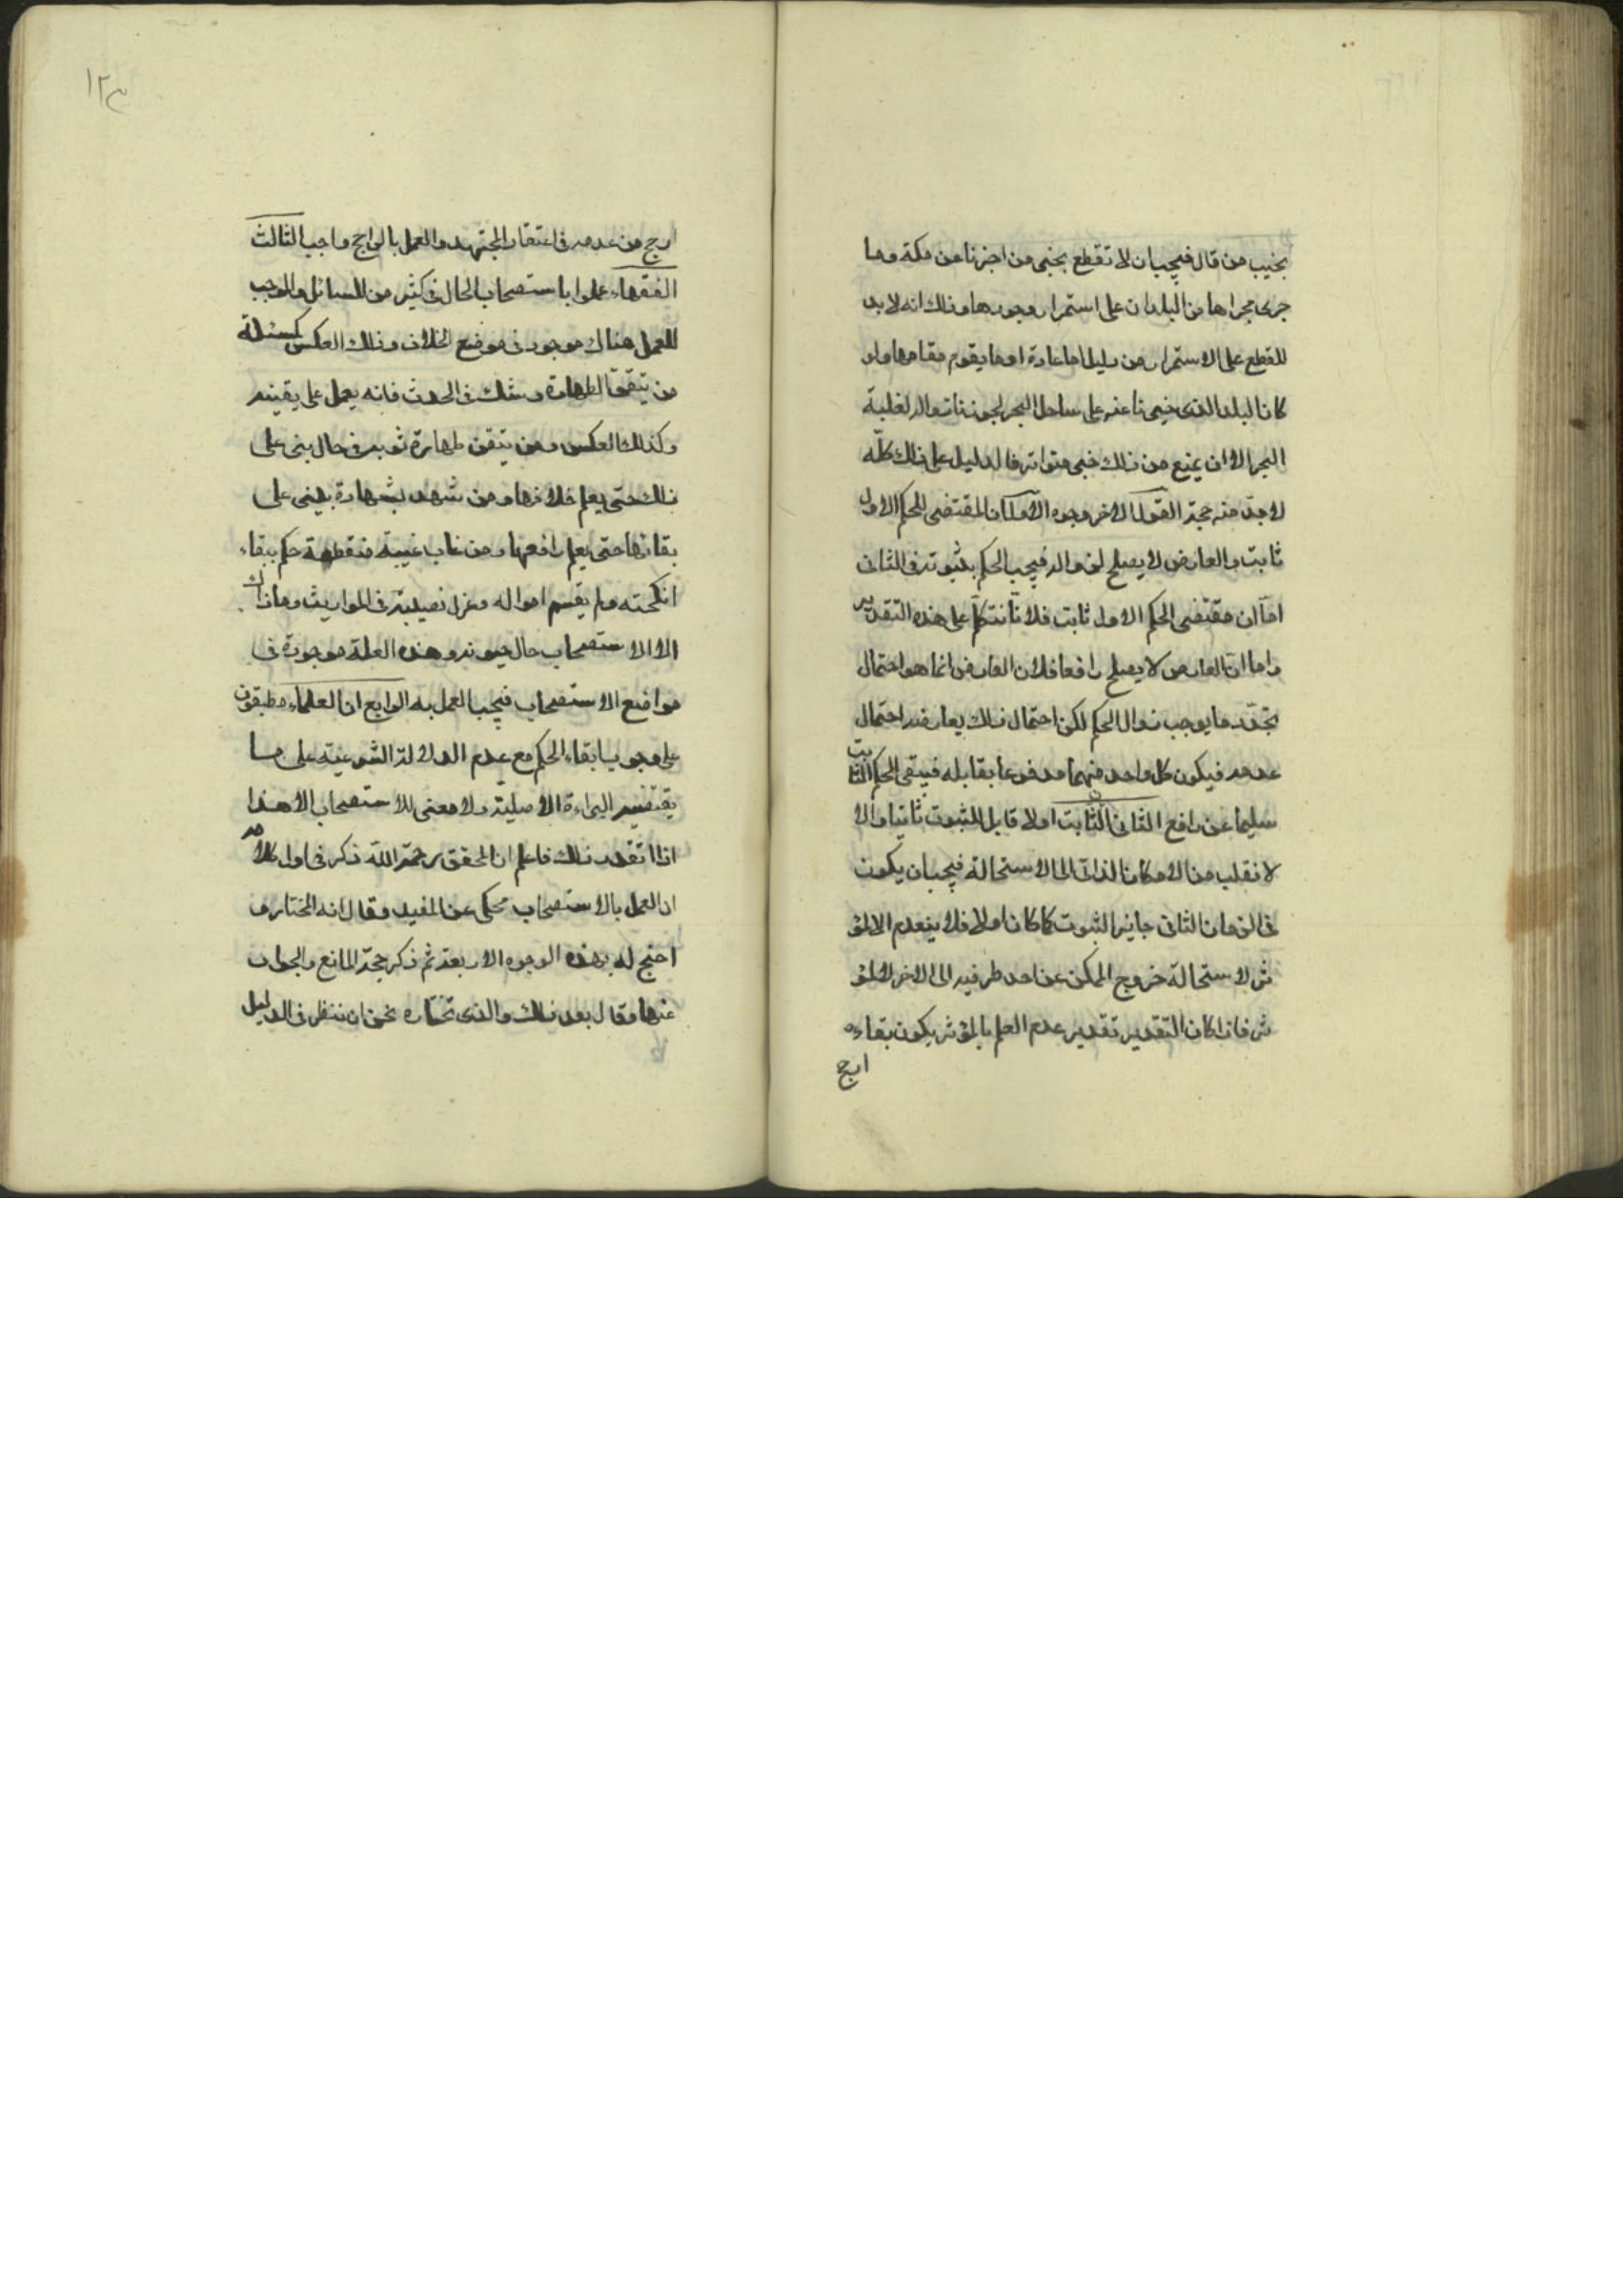 نجيب من قال فيجب ان لا تقطع بخبر من اخبرنا عن مكة وما
جرى مجراها من البلدان على استمرار وجودها وذلك انه لا بد
للقطع على الاستمرار من دليل اما عادة او ما يقوم مقامها ولو
كان البلد الذى خبرنا عنه على ساحل البحر لجوزنا زواله لغلبة
البحر الا ان يمنع من ذلك خبر متواتر فالدليل على ذلك كله
لا بد منه حجة القول الاخر وجوه الاول ان المقتضى للحكم الاول
ثابت والعارض لا يصلح لزواله فيجب الحكم بثبوته فى الثانى
اما ان مقتضى الحكم الاول ثابت فلانا نتكلم على هذه التقدير
واما ان العارض لا يصلح رافعا فلان العارض انما هو احتمال
تجدد ما يوجب زوال الحكم لكن احتمال ذلك يعارضه احتمال
عدمه فيكون كل واحد منهما مدفوعا بقابله فيبقى الحكم الثابت
سليما عن رافع الثانى الثابت اولا قابل للثبوت ثانيا والا
لانقلب من الامكان الذاتى الى الاستحالة فيجب ان يكون
فى الزمان الثانى جايز الثبوت كما كان اولا فلا ينعدم الا لمؤ
ثر لاستحالة خروج الممكن عن احد طرفيه الى الاخر لا لمؤ
ثر فاذا كان التقدير تقدير عدم العلم بالمؤثر يكون بقاءه
ارجح
١٢٣
ارجح من عدمه فى اعتقاد المجتهد والعمل بالراجح واجب الثالث
الفقهاء عملوا باستصحاب الحال فى كثير من المسائل والموجب
للعمل هناك موجود فى موضع الخلاف وذلك العكس كمسئلة
من تيقن الطهارة وشك فى الحدث فانه يعمل على يقينه
وكذلك العكس ومن تيقن طهارة ثوبه فى حال بنى على
ذلك حتى يعلم خلافها ومن شهد بشهادة يبنى على
بقائها حتى يعلم رافعها ومن غاب غيبة منقطعة حكم ببقاء
انكحته ولم يقسم امواله وعزل نصيبه فى المواريث وما ذاك
الا لاستصحاب حال حيوته وهذه العلة موجودة فى
مواضع الاستصحاب فيجب العمل به الرابع ان العلماء مطبقون
على وجوب ابقاء الحكم مع عدم الدلالة الشرعية على ما
يقتضيه البراءة الاصلية ولا معنى للاستصحاب الا هذا
اذا تقرر ذلك فاعلم ان المحقق رحمة الله ذكر فى اول كلامه
ان العمل بالاستصحاب محكى عن المفيد وقال انه المختار و
احتج له بهذه الوجوه الاربعة ثم ذكر حجة المانع والجواب
عنها وقال بعد ذلك والذى نختاره نحن ان ننظر فى الدليل